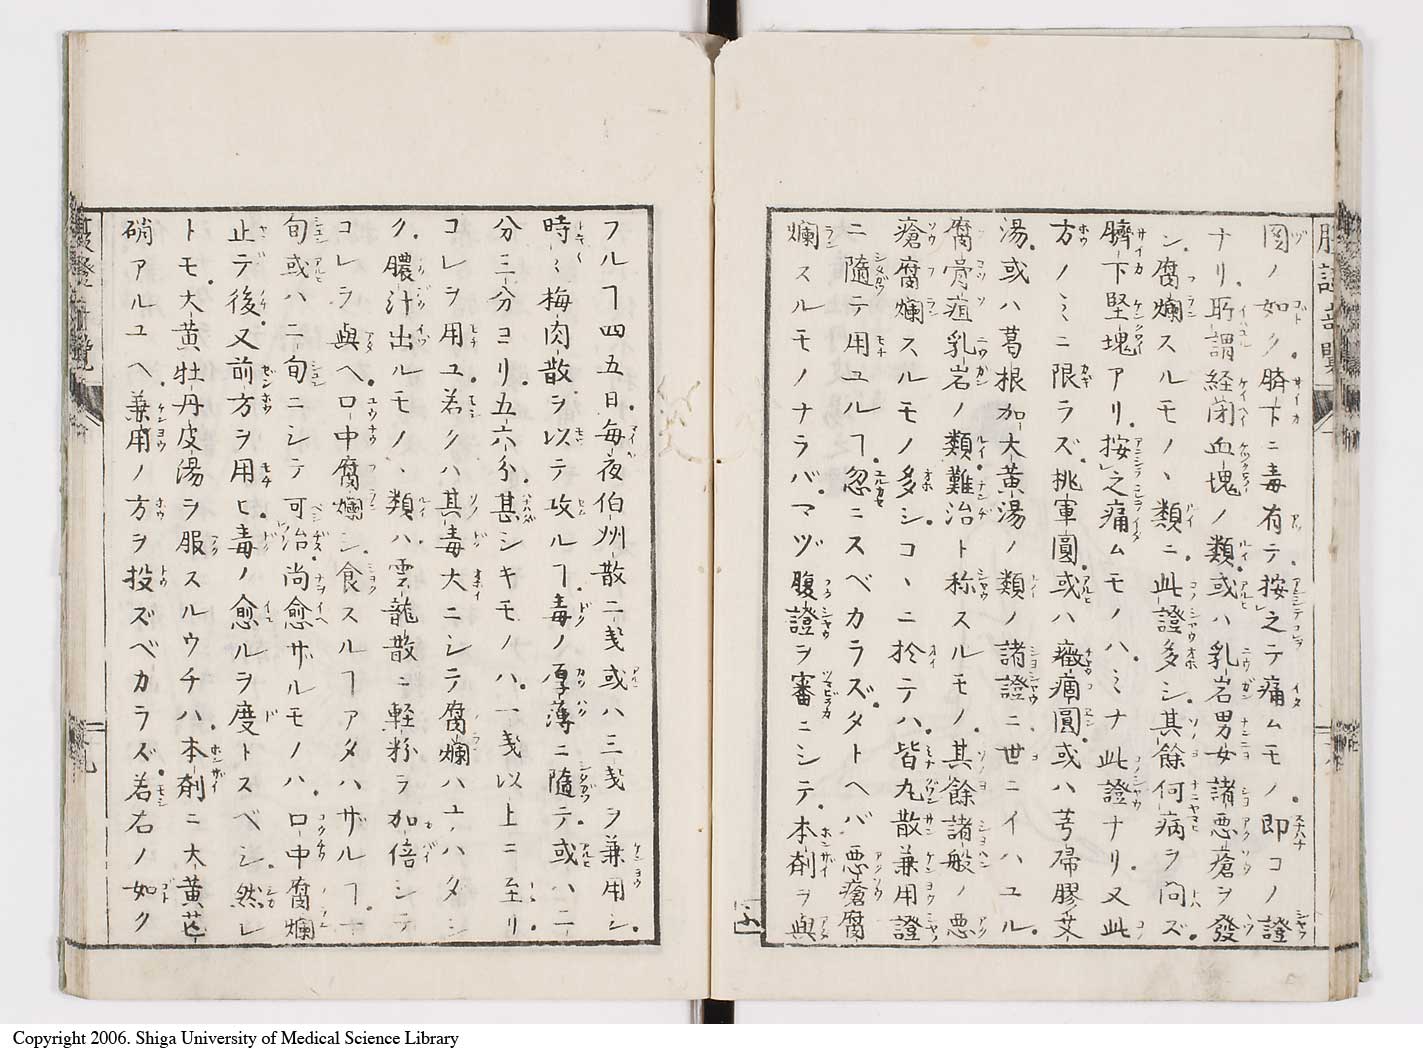 圖ノ如ク。臍下ニ毒有テ按之テ痛ムモノ。即コノ證
ナリ。所謂経閉血塊ノ類。或ハ乳岩男女諸悪瘡ヲ發
シ。腐爛スルモノヽ類ニ。此證多シ。其餘何病ヲ問ズ。
臍下堅塊アリ。按之痛ムモノハ。ミナ此證ナリ又此
方ノミニ限ラズ。桃軍圓。或ハ癥痼圓。或ハ芎歸膠艾
湯。或ハ葛根加大黄湯ノ類ノ諸證ニ世ニイハユル。
腐骨疽乳岩ノ類。難治ト称スルモノ。其餘諸般ノ悪
瘡腐爛スルモノ多シコヽニ於テハ。皆丸散兼用證
ニ隨テ用ユルヿ。忽ニスベカラズ。タトヘバ悪瘡腐
爛スルモノナラバ。マヅ腹證ヲ審ニシテ。本劑ヲ與
フルヿ四五日。毎夜伯州散二戔或ハ三戔ヲ兼用シ。
時々梅肉散ヲ以テ攻ルヿ毒ノ厚薄ニ隨テ。或ハ二
分三分ヨリ五六分。甚シキモノハ。一戔以上ニ至リ。
コレヲ用ユ。若クハ其毒大ニシテ腐爛ハユハダシ
ク。膿汁出ルモノヽ類ハ雲龍散ニ軽粉ヲ加倍シテ
コレヲ與ヘ。口中腐爛シ食スルヿアタハザルヿ一
旬或ハ二旬ニシテ可治。尚愈ザルモノハ。口中腐爛
止テ後。又前方ヲ用ヒ。毒ノ愈ルヲ度トスベシ。然レ
トモ。大黄牡丹皮湯ヲ服スルウチハ。本劑ニ大黄芒
硝アルユヘ。兼用ノ方ヲ投ズベカラズ。若右ノ如ク
Copyright 2006. Shiga University of Medical Science Library